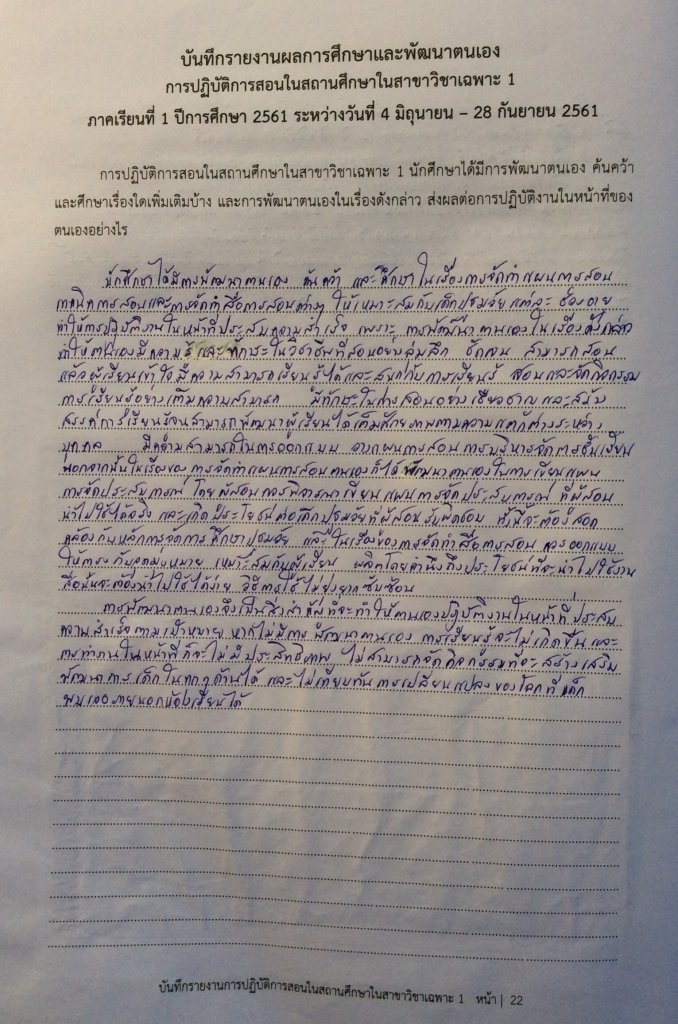 บันทึกรายงานผลการศึกษาและพัฒนาตนเอง
การปฏิบัติการสอนในสถานศึกษาในสาขาวิชาเฉพาะ 1
ภาคเรียนที่ 1 ปีการศึกษา 2561 ระหว่างวันที่ 4 มิถุนายน – 28 กันยายน 2561
การปฏิบัติการสอนในสถานศึกษาในสาขาวิชาเฉพาะ 1 นักศึกษาได้มีการพัฒนาตนเอง ค้นคว้า
และศึกษาเรื่องใดเพิ่มเติมบ้าง และการพัฒนาตนเองในเรื่องดังกล่าว ส่งผลต่อการปฏิบัติงานในหน้าที่ของ
ตนเองอย่างไร
นักศึกษาได้มีการพัฒนาตนเอง ค้นคว้า และศึกษาในเรื่องการจัดทำแผนการสอน
เทคนิคการสอนและการจัดทำสื่อการสอนต่างๆ ให้เหมาะสมกับเด็กปฐมวัยแต่ละช่วงอายุ
ทำให้การปฏิบัติงานในหน้าที่ประสบความสำเร็จ เพราะ การพัฒนาตนเองในเรื่องดังกล่าว
ทำให้ตนเองมีความรู้และทักษะในวิชาชีพที่สอนอย่างลุ่มลึก ชัดเจน สามารถสอน
แล้วผู้เรียนเข้าใจมีความสามารถเรียนรู้ได้และสนุกกับการเรียนรู้ สอนและจัดกิจกรรม
การเรียนรู้อย่างเต็มความสามารถ มีทักษะในการสอนอย่างเชี่ยวชาญและสร้าง
สรรค์การเรียนรู้จนสามารถพัฒนาผู้เรียนได้เต็มศักยภาพตามความแตกต่างระหว่าง
บุคคล มีความสามารถในการออกแบบ วางแผนการสอน การบริหารจัดการชั้นเรียน
นอกจากนั้นในเรื่องของการจัดทำแผนการสอนตนเองก็ได้พัฒนาตนเองในการเขียนแผน
การจัดประสบการณ์ โดยผู้สอนควรพิจารณาเขียนแผนการจัดประสบการณ์ ที่ผู้สอน
นำไปใช้ได้จริง และเกิดประโยชน์ต่อเด็กปฐมวัยที่ผู้สอนรับผิดชอบ ทั้งนี้จะต้องสอด
คล้องกับหลักการจัดการศึกษาปฐมวัย และในเรื่องของการจัดทำสื่อการสอน ควรออกแบบ
ให้ตรงกับจุดมุ่งหมาย เหมาะสมกับผู้เรียน ผลิตโดยคำนึงถึงประโยชน์ที่จะนำไปใช้งาน
สื่อนั้นจะต้องนำไปใช้ได้ง่าย วิธีการใช้ไม่ยุ่งยากซับซ้อน
การพัฒนาตนเองจึงเป็นสิ่งสำคัญที่จะทำให้ตนเองปฏิบัติงานในหน้าที่ประสบ
ความสำเร็จตามเป้าหมาย หากไม่มีการพัฒนาตนเอง การเรียนรู้จะไม่เกิดขึ้น และ
การทำงานในหน้าที่ก็จะไม่มีประสิทธิภาพ ไม่สามารถจัดกิจกรรมที่จะสร้างเสริม
พัฒนาการเด็กในทุกๆด้านได้ และไม่เทียบทันการเปลี่ยนแปลงของโลกที่เด็ก
พบเจอภายนอกห้องเรียนได้
บันทึกรายงานการปฏิบัติการสอนในสถานศึกษาในสาขาวิชาเฉพาะ 1 หน้า | 22